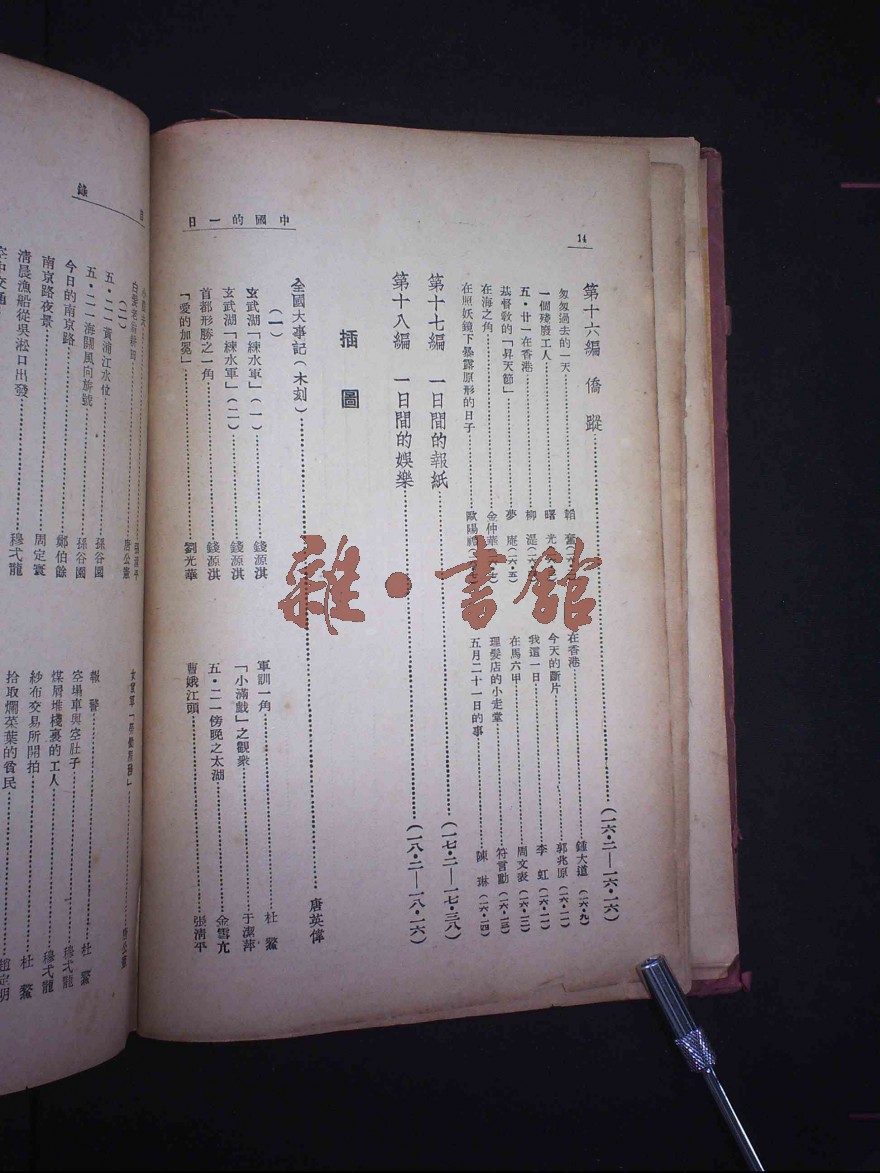 14
中國的一日
第十六編　僑蹤……(一六·二—一六·一六)
匆匆過去的一天……韜奮
一個殘廢工人……曙光
五·廿一在香港……柳湜
基督敎的「昇天節」……夢庵(一六·五)
在海之角……金仲華
在照妖鏡下暴露原形的日子……歐陽
在香港……鍾大道(一六·九)
今天的斷片……郭兆原(一六·一一)
我這一日……李虹(一六·一一)
在馬六甲……周文
理髮店的小走堂……符言勵(一六·一三)
五月二十一日的事……陳琳(一六·一四)
第十七編　一日間的報紙……(一七·二—一七·三八)
第十八編　一日間的娛樂……(一八·二—一八·一六)
插圖
全國大事記(木刻)……唐英偉
(一)
玄武湖「練水軍」(一)……錢源淇
玄武湖「練水軍」(二)……錢源淇
首都形勝之一角……錢源淇
「愛的加冕」……劉光華
軍訓一角……杜鰲
「小滿戲」之觀衆……于潔萍
五·二一傍晚之太湖……金雪亢
曹娥江頭……張淸平
目錄
(二)
五·二一黃浦江水位……孫谷園
五·二一海關風向旂號……孫谷園
今日的南京路……鄭伯餘
南京路夜景……周定寰
淸晨漁船從吳淞口出發……穆弍龍
報警……杜鰲
空塲車與空肚子……穆弍龍
煤屑堆棧裏的工人……穆弍龍
紗布交易所開拍……杜鰲
拾取爛菜葉的貧民……趙定明
雜·書館